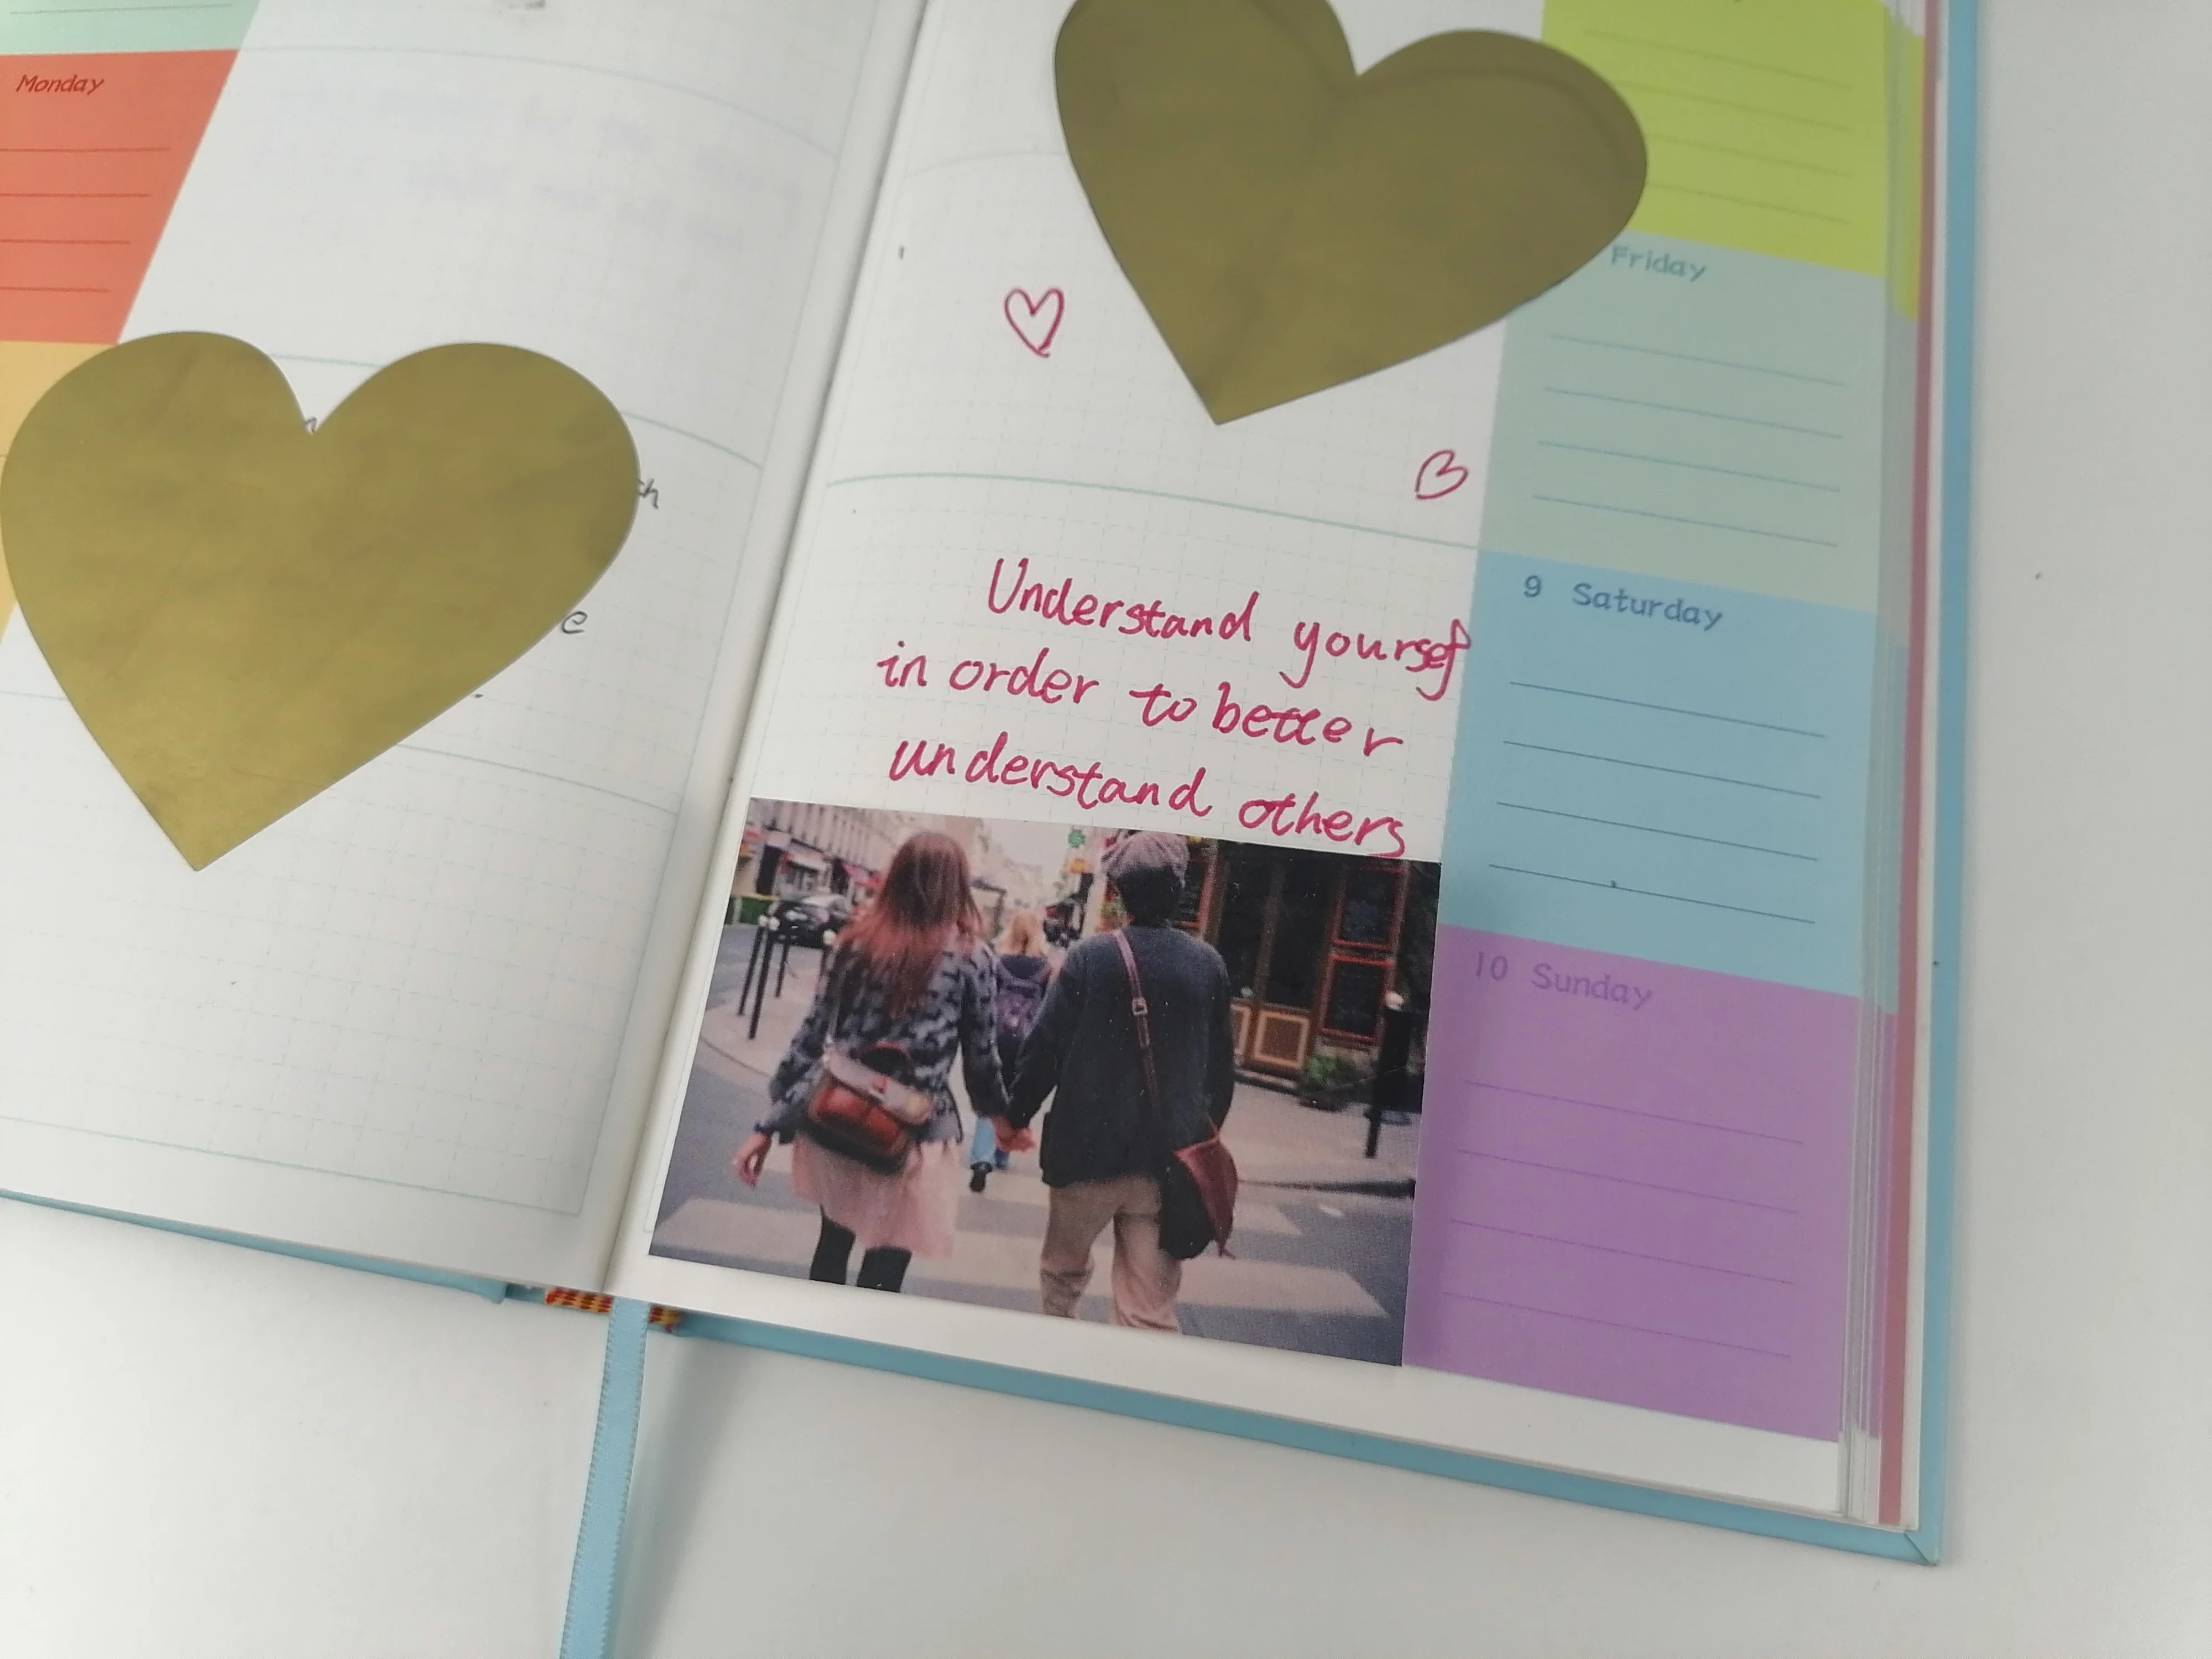 Monday
Friday
9 Saturday
Understand yourself
in order to better
understand others
10 Sunday